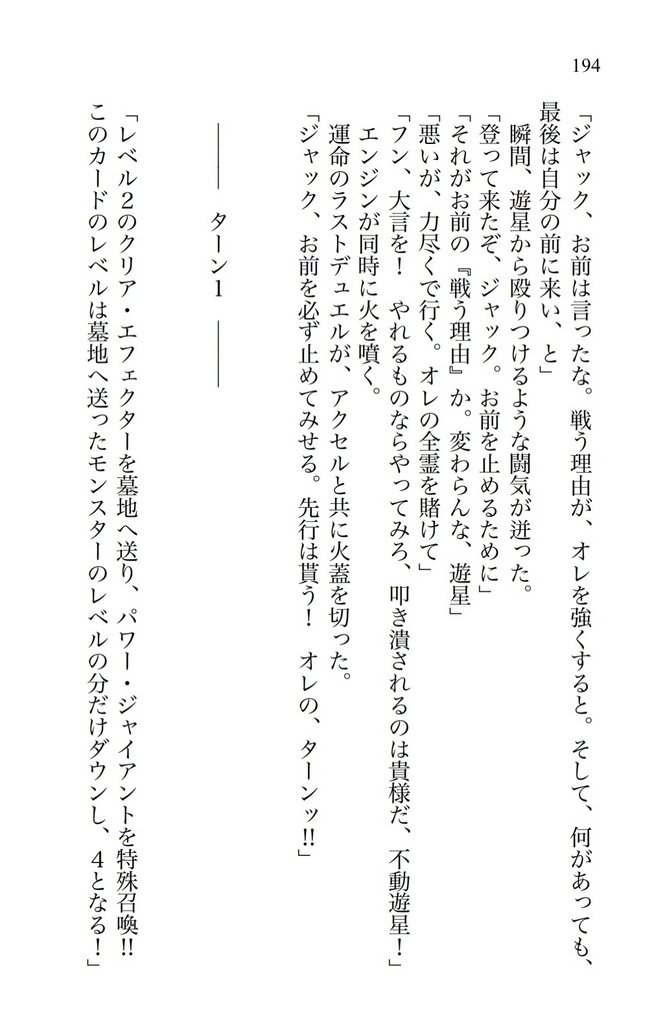 194
「ジャック、お前は言ったな。戦う理由が、オレを強くすると。そして、何があっても、
最後は自分の前に来い、と」
瞬間、遊星から殴りつけるような闘気が迸った。
「登って来たぞ、ジャック。お前を止めるために」
「それがお前の『戦う理由』か。変わらんな、遊星」
「悪いが、力尽くで行く。オレの全霊を賭けて」
「フン、大言を！　やれるものならやってみろ、叩き潰されるのは貴様だ、不動遊星！」
エンジンが同時に火を噴く。
運命のラストデュエルが、アクセルと共に火蓋を切った。
「ジャック、お前を必ず止めてみせる。先行は貰う！　オレの、ターンッ!!」
―― ターン1 ――
「レベル2のクリア・エフェクターを墓地へ送り、パワー・ジャイアントを特殊召喚!!
このカードのレベルは墓地へ送ったモンスターのレベルの分だけダウンし、4となる！」